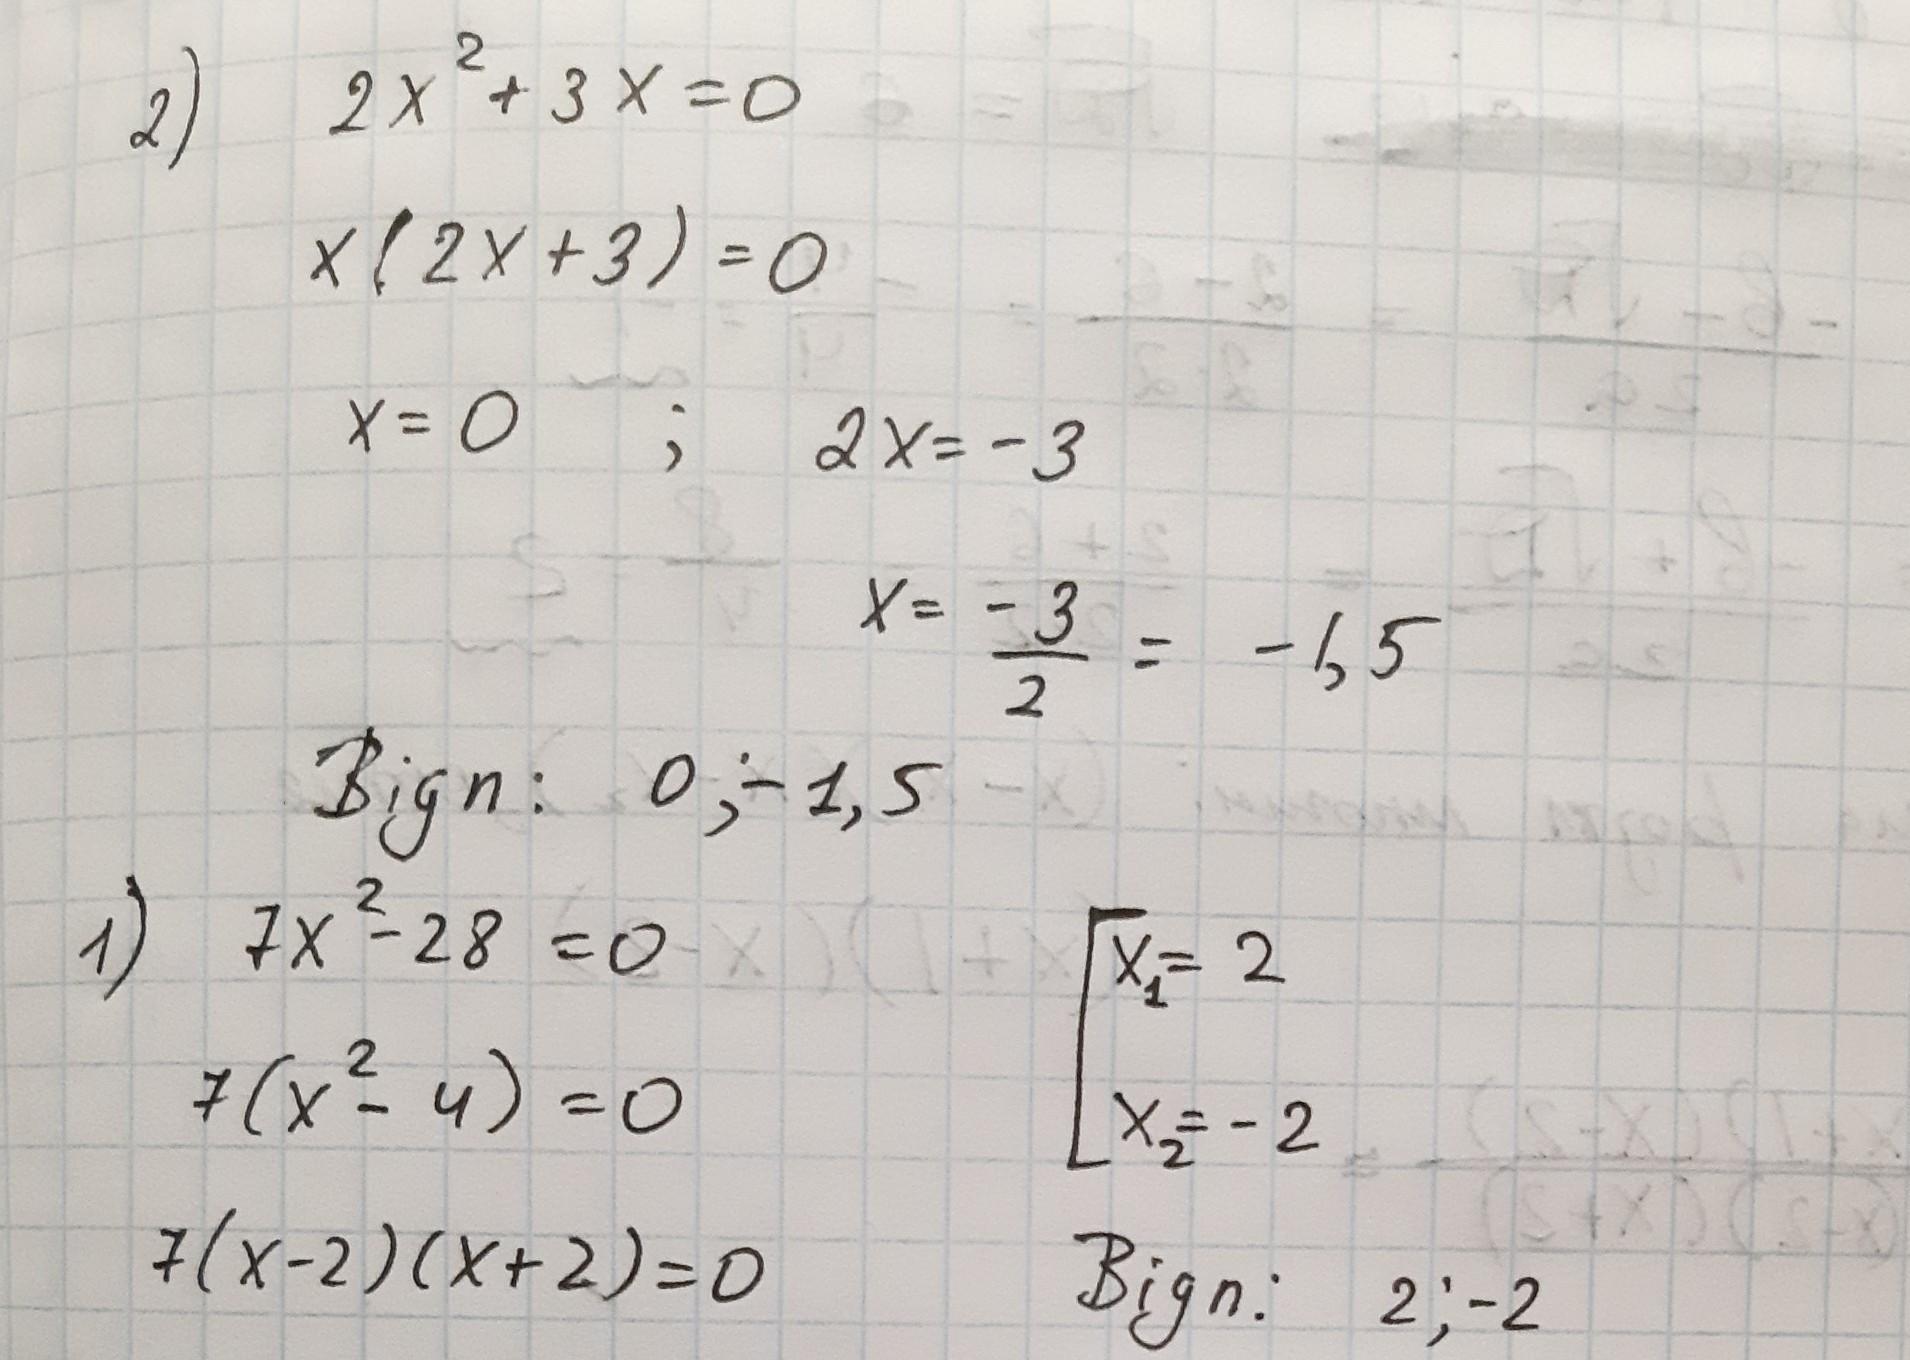 2) 2x² + 3x = 0
x(2x + 3) = 0
x = 0 ; 2x = -3
x = -3/2 = -1,5
Відп: 0; -1,5
1) 7x² - 28 = 0
7(x² - 4) = 0
7(x-2)(x+2) = 0
[x₁ = 2
x₂ = -2
Відп: 2; -2